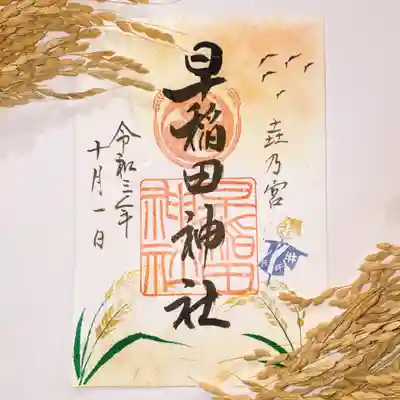 壵乃宮
早稲田神社
早稲田
神社
令和三年
十月一日